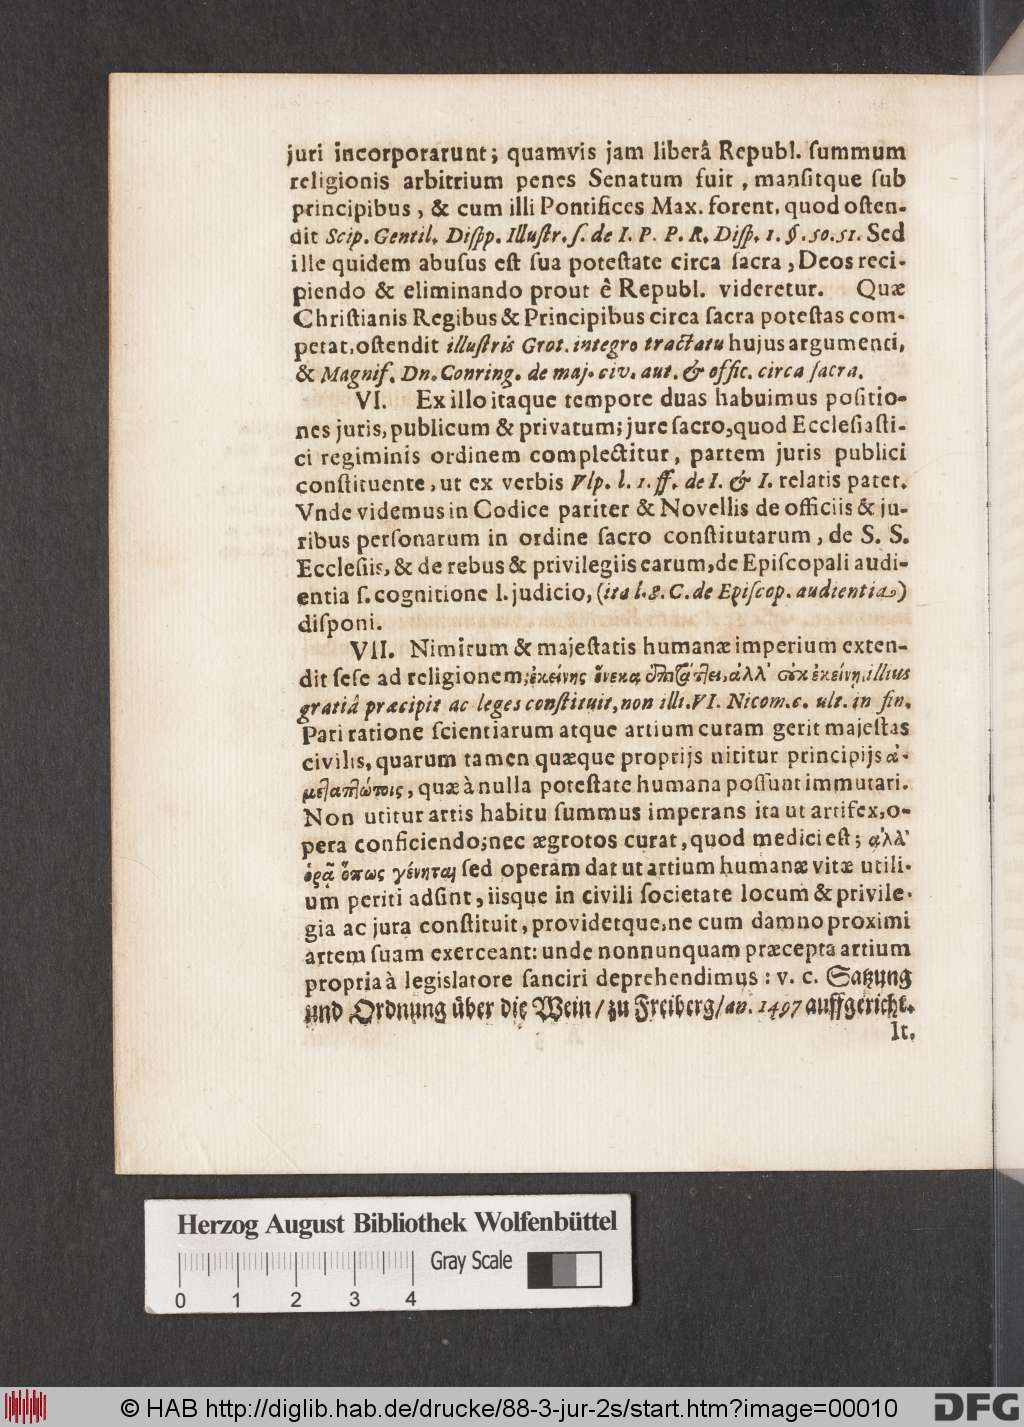 juri incorporarunt; quamvis jam liberâ Republ. ſummum
religionis arbitrium penes Senatum fuit, manſitque ſub
principibus, & cum illi Pontifices Max. forent, quod oſten-
dit Scip. Gentil. Diſpp. Illuſtr. ſ. de I. P. P. R. Diſp. 1. §. 50. 51. Sed
ille quidem abuſus eſt ſua poteſtate circa ſacra, Deos reci-
piendo & eliminando prout ê Republ. videretur. Quæ
Chriſtianis Regibus & Principibus circa ſacra poteſtas com-
petat, oſtendit illuſtris Grot. integro tractatu hujus argumenti,
& Magnif. Dn. Conring. de maj. civ. aut. & offic. circa ſacra.
VI. Ex illo itaque tempore duas habuimus poſitio-
nes juris, publicum & privatum; jure ſacro, quod Eccleſiaſti-
ci regiminis ordinem complectitur, partem juris publici
conſtituente, ut ex verbis Vlp. l. 1. ff. de I. & I. relatis patet.
Vnde videmus in Codice pariter & Novellis de officiis & ju-
ribus perſonarum in ordine ſacro conſtitutarum, de S. S.
Eccleſiis, & de rebus & privilegiis earum, de Epiſcopali audi-
entia ſ. cognitione l. judicio, (ita l. 8. C. de Epiſcop. audientia)
diſponi.
VII. Nimirum & majeſtatis humanæ imperium exten-
dit ſeſe ad religionem; ἐκείνης ἕνεκα ἐπιτάτ]ει, ἀλλ' οὐκ ἐκείνη, illius
gratiâ præcipit ac leges conſtituit, non illi. VI. Nicom. c. ult. in fin.
Pari ratione ſcientiarum atque artium curam gerit majeſtas
civilis, quarum tamen quæque proprijs nititur principijs ἀ-
μεταπ]ώτοις, quæ à nulla poteſtate humana poſſunt immutari.
Non utitur artis habitu ſummus imperans ita ut artifex, o-
pera conficiendo; nec ægrotos curat, quod medici eſt; ἀλλ'
ὁρᾷ ὅπως γένηται ſed operam dat ut artium humanæ vitæ utili-
um periti adſint, iisque in civili ſocietate locum & privile-
gia ac jura conſtituit, providetque, ne cum damno proximi
artem ſuam exerceant: unde nonnunquam præcepta artium
propria à legislatore ſanciri deprehendimus: v. c. Satzung
und Ordnung über die Wein / zu Freiberg / an. 1497 auffgericht.
It.
Herzog August Bibliothek Wolfenbüttel
Gray Scale
0 1 2 3 4
© HAB http://diglib.hab.de/drucke/88-3-jur-2s/start.htm?image=00010
DFG